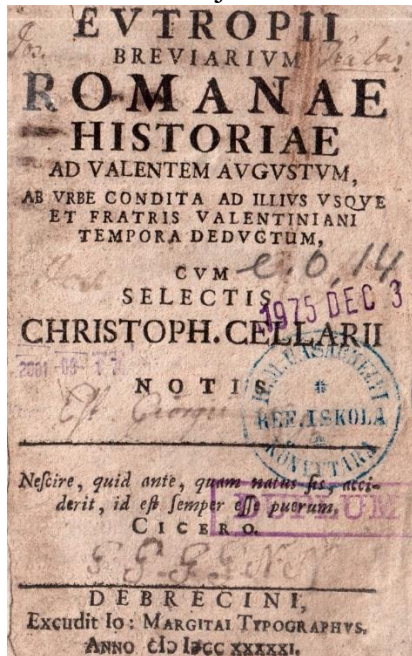 EVTROPII
BREVIARIVM
ROMANAE
HISTORIAE
AD VALENTEM AVGVSTVM,
AB VRBE CONDITA AD ILLIVS VSQVE
ET FRATRIS VALENTINIANI
TEMPORA DEDVCTUM,
CVM
e.o,14
SELECTIS
1975 DEC 3
CHRISTOPH. CELLARII
NOTIS
REF. ISKOLA
KÖNYVTÁRA
Neſcire, quid ante, quam natus ſis, acci-
derit, id eſt ſemper eſſe puerum.
DUPLUM
CICERO.
DEBRECINI,
Excudit Io: MARGITAI TYPOGRAPHVS.
ANNO CIↃ IↃCC XXXXXI.